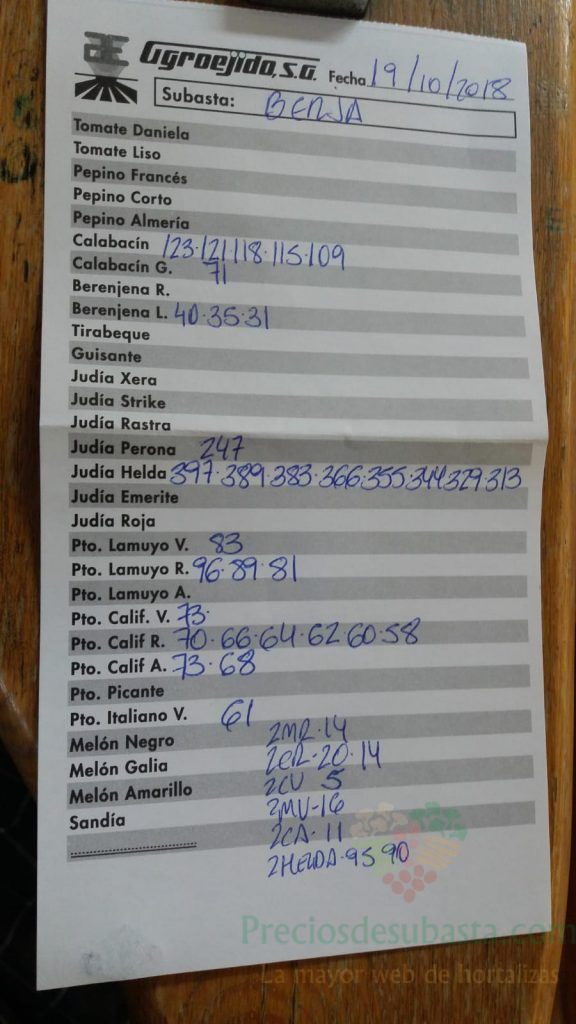 Agroejido, S.A. Fecha 19/10/2018
Subasta: BERJA
Tomate Daniela
Tomate Liso
Pepino Francés
Pepino Corto
Pepino Almería
Calabacín 123·121·118·115·109
Calabacín G. 71
Berenjena R.
Berenjena L. 40·35·31
Tirabeque
Guisante
Judía Xera
Judía Strike
Judía Rastra
Judía Perona 247
Judía Helda 397·389·383·366·355·344·329·313
Judía Emerite
Judía Roja
Pto. Lamuyo V. 83
Pto. Lamuyo R. 96·89·81
Pto. Lamuyo A.
Pto. Calif. V. 73·
Pto. Calif R. 70·66·64·62·60·58
Pto. Calif A. 73·68
Pto. Picante
Pto. Italiano V. 61
Melón Negro 2MR·14
Melón Galia 2CR·20·14
Melón Amarillo 2CV 5
Sandía 2MV-16
2CA·11
2HELDA·95 90
Preciosdesubasta.com
La mayor web de hortalizas